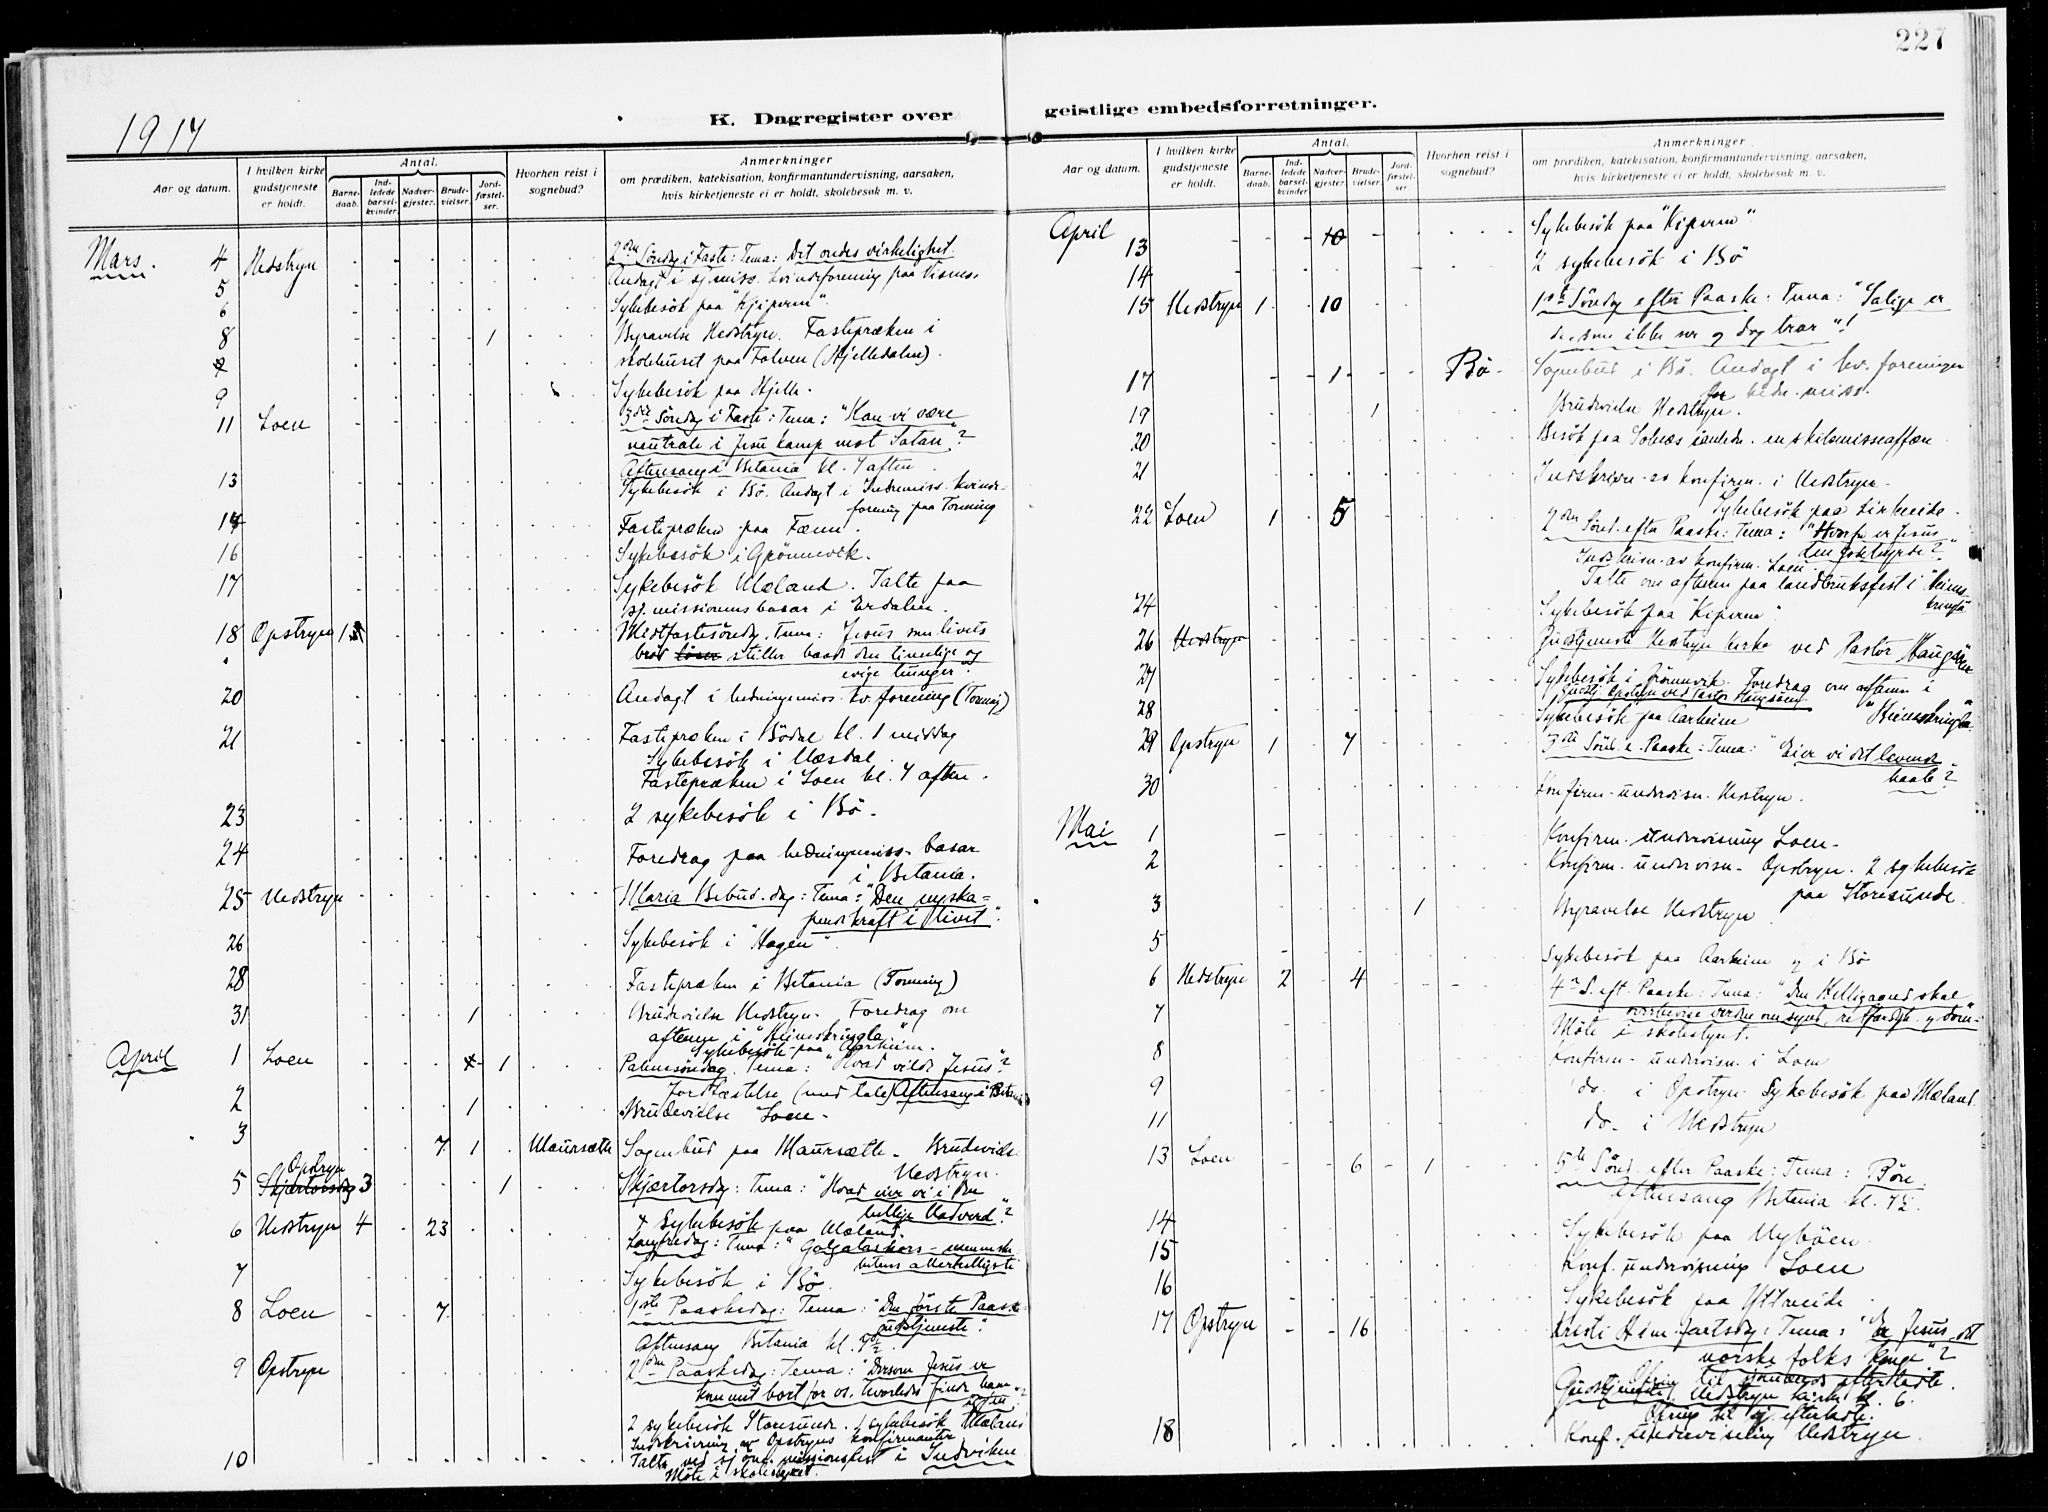 227
1917
K. Dagregister over
geistlige embedsforretninger.
Aar og datum.
I hvilken kirke gudstjeneste er holdt.
Antal.
Barne-daab.
Ind-ledede barsel-kvinder.
Nadver-gjester.
Brude-vielser.
Jord-fæstel-ser.
Hvorhen reist i sognebud?
Anmerkninger
om prædiken, katekisation, konfirmantundervisning, aarsaken,
hvis kirketjeneste ei er holdt, skolebesøk m. v.
Mars. 4 Nedstryn 2den Söndag i Faste: Tema: Det ondes virkelighet.
5 Andagt i sj.miss. kvindeforening paa Visnes.
6 Sykebesök paa "Kjiperen".
8 1 Begravelse Nedstryn. Fastepræken i
skolehuset paa Folven (Hjelledalen).
9 Sykebesök paa Hjelle.
11 Loen 3die Söndag i Faste: Tema: "Kan vi være
neutrale i Jesu kamp mot Satan"?
Aftensang i Betania kl. 7 aften
13 Sykebesök i Bö. Andagt i Indremiss. kvinde-
forening paa Tonning
14 Fastepræken paa Fænn.
16 Sykebesök i Grönnevik.
17 Sykebesök Mæland. Talte paa
sj. missionens basar i Erdalen.
18 Opstryn 1 Midtfastesöndag. Tema: Jesus som livets
bröd stiller baade den timelige og
evige hunger.
20 Andagt i hedningemiss. kv. forening (Tonning)
21 Fastepræken i Bödal kl. 1 middag
Sykebesök i Næsdal
Fastepræken i Loen kl. 7 aften.
23 2 sykebesök i Bö.
24 Foredrag paa hedningemiss. basar
i Betania.
25 Nedstryn Maria Bebud. dag: Tema: "Den nyska-
pende kraft i livet".
26 Sykebesök i "Hagen"
28 Fastepræken i Betania (Tonning)
31 1 Brudevielse Nedstryn. Foredrag om
aftenen i "Heimskringla"
Sykebesök paa Aarheim.
April 1 Loen 1 Palmesöndag. Tema: "Hvad vilde Jesus"?
Jordfæstelse (med tale) Aftensang i Betania
2 1 Brudevielse Loen.
3 7 1 Maursætte Sognebud paa Maursætte. Brudevielse
Nedstryn.
5 Opstryn Skjærtorsdag 3 1 Skjærtorsdag: Tema: "Hvad eier vi i den
hellige Nadverd"?
4 Sykebesök paa Mæland
6 Nedstryn 4 23 Langfredag: Tema: "Golgatas kors - menneske-
hetens allerhelligste
7 Sykebesök i Bö.
8 Loen 7 1ste Paaskedag: Tema: "Den förste Paaske-
gudstjeneste".
Aftensang Betania kl. 7½
9 Opstryn 2den Paaskedag: Tema: "Dersom Jesus er
kommet bort for os, hvorledes finde ham
igjen"?
2 sykebesök Storesunde. 1 sykebesök Mæland
Indskrivning av Opstryns konfirmanter
10 Talte ved sjöm. missionsfest i Indviken
Möte i skolestyret.
Aar og datum.
I hvilken kirke gudstjeneste er holdt.
Antal.
Barne-daab.
Ind-ledede barsel-kvinder.
Nadver-gjester.
Brude-vielser.
Jord-fæstel-ser.
Hvorhen reist i sognebud?
Anmerkninger
om prædiken, katekisation, konfirmantundervisning, aarsaken,
hvis kirketjeneste ei er holdt, skolebesøk m. v.
April 13 10 Sykebesök paa "Kiperen".
14 2 sykebesök i Bö
15 Nedstryn 1 10 1ste Söndag efter Paaske: Tema: "Salige er
de, som ikke ser og dog tror"!
17 1 Bö Sognebud i Bö. Andagt i kv. foreningen
for hedn. miss.
19 1 Brudevielse Nedstryn.
20 Besök paa Solnæs i anledn. en skilsmisseaffære
21 Indskrivn. av konfirm. i Nedstryn.
Sykebesök paa Lirheide.
22 Loen 1 5 2den Sönd. efter Paaske: Tema: "Hvorfor er Jesus
den gode hyrde"?
Indskrivn. av konfirm. Loen.
Talte om aftenen paa landbruksfest i "Heims-
kringla"
24 Sykebesök paa "Kiperen"
26 Nedstryn Gudstjeneste Nedstryn kirke ved Pastor Haugsöen
27 Sykebesök i Grönnevik. Foredrag om aftenen i
"Heimskringla"
Gudstj. Opstryn ved Pastor Haugsöen
28 Sykebesök paa Aarheim
29 Opstryn 1 7 3die Sönd. e. Paaske: Tema: "Eier vi det levende
haab"?
30 Konfirm. undervisn. Nedstryn.
Mai 1 Konfirm. undervisning Loen.
2 Konfirm. undervisn. Opstryn. 2 sykebesök
paa Storesunde.
3 1 Begravelse Nedstryn
5 Sykebesök paa Aarheim og i Bö
6 Nedstryn 2 4 4de S. eft. Paaske: Tema: "Den Helligaand skal
overbevise verden om synd, retfærdigh. og dom"
7 Möte i skolestyret.
8 Konfirm. undervisn. i Loen
9 do. i Opstryn Sykebesök paa Mæland.
11 do. i Nedstryn
13 Loen 6 1 5te Sönd. efter Paaske: Tema: Bön.
Aftensang Betania kl. 7½.
14 Sykebesök paa Nyböen
15 Konf. undervisning Loen
16 Sykebesök paa Ytreeide
17 Opstryn 16 Kristi Him.fartsdag: Tema: "Er Jesus det
norske folks Konge"?
Ofring til sömænds efterladte.
Gudstjeneste Nedstryn kirke kl. 6.
Ofring til sj. efterladte.
18 Konf. undervisning Nedstryn.